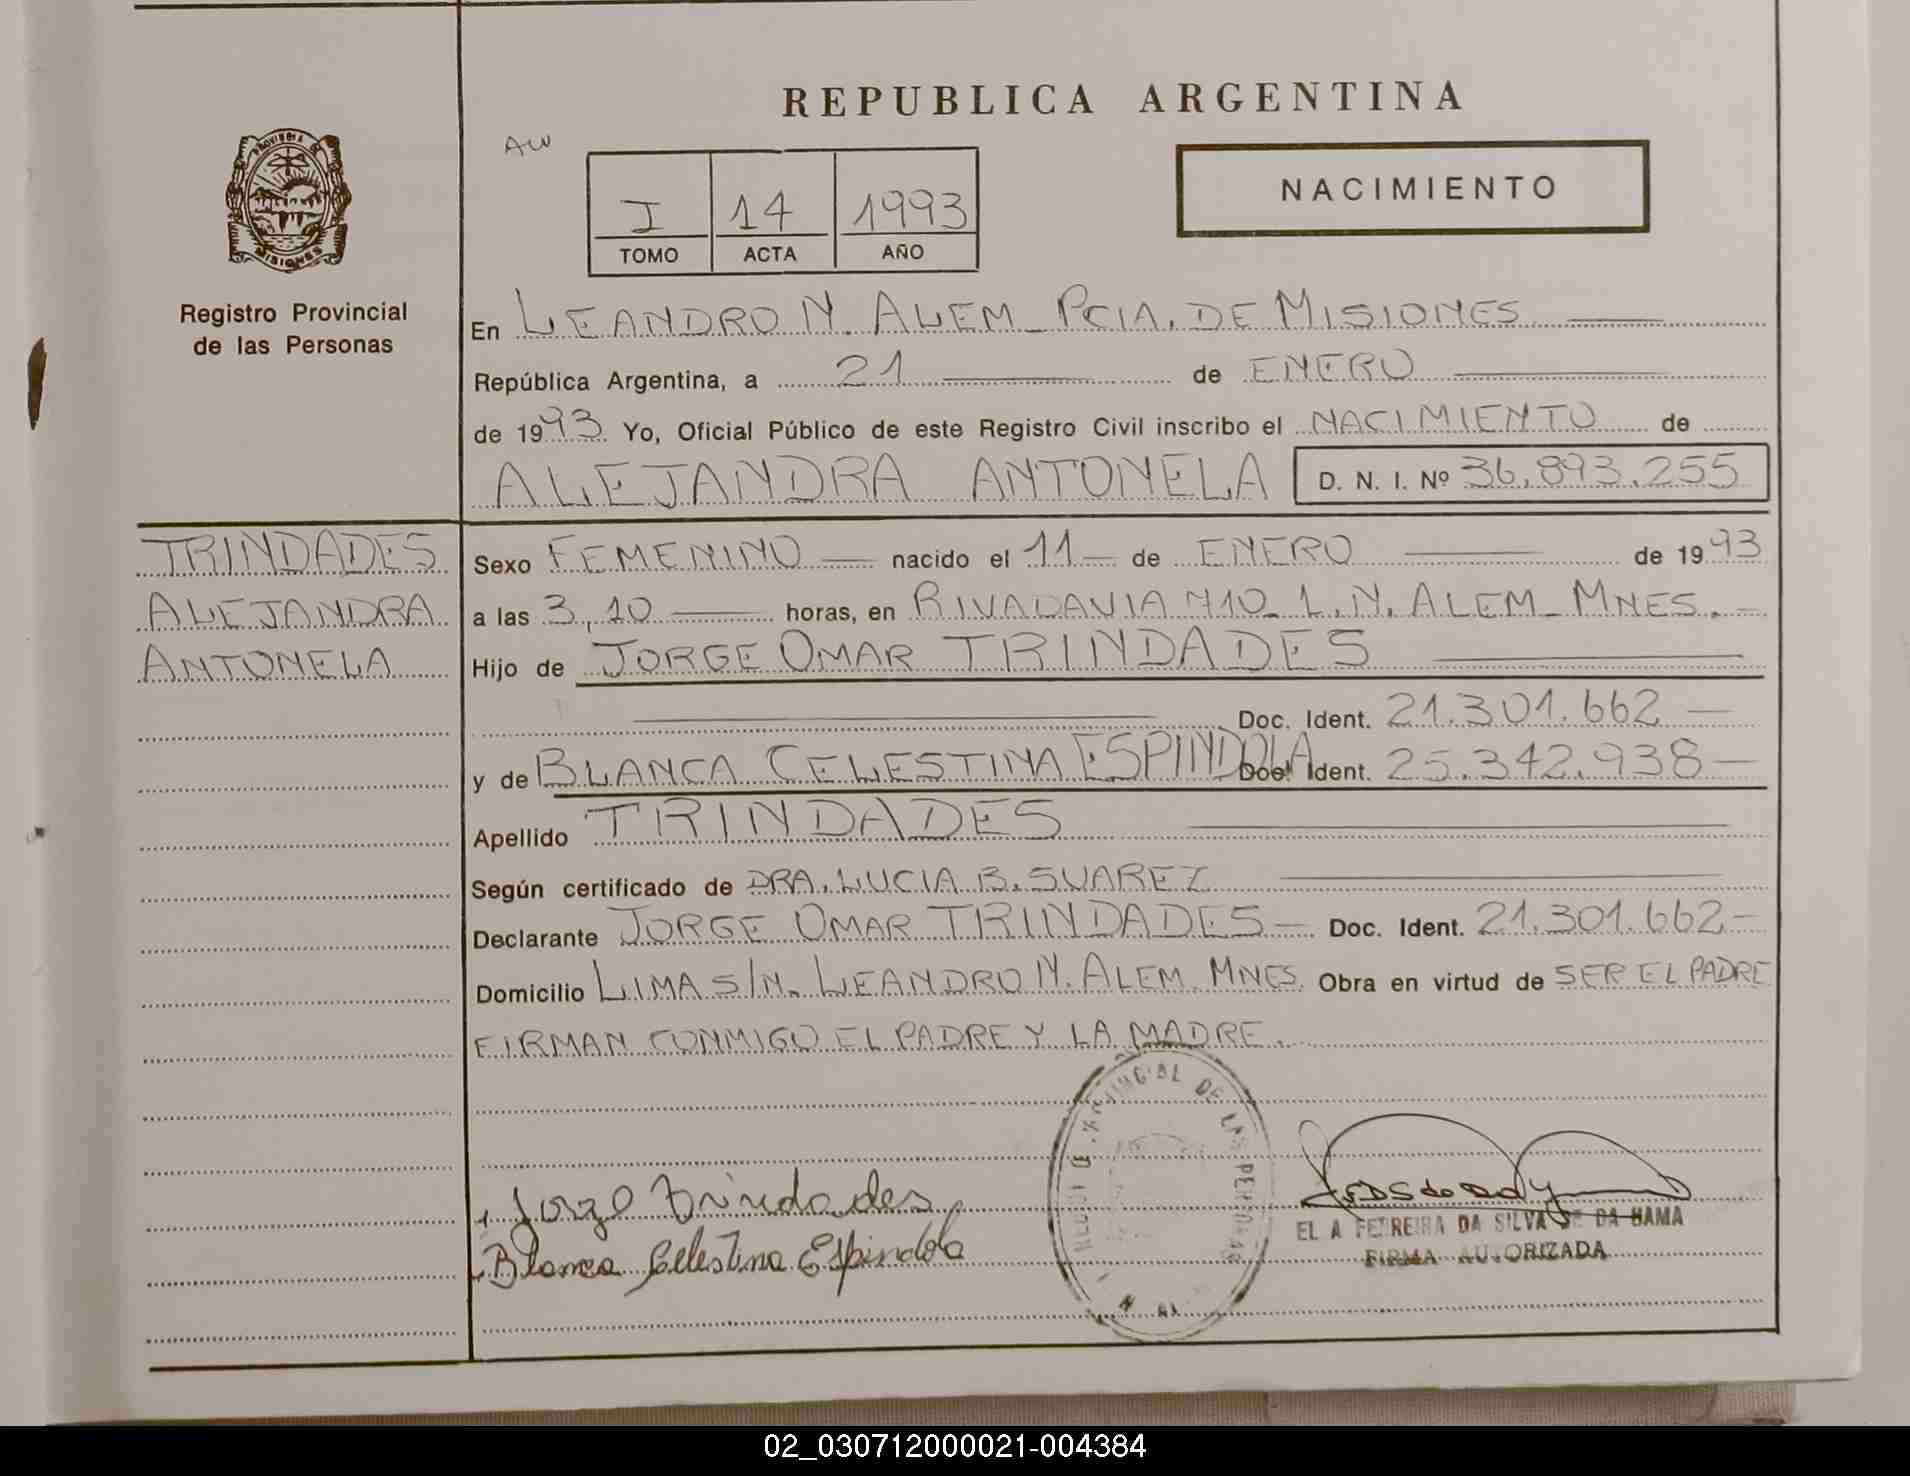 REPUBLICA ARGENTINA
AW
I 14 1993
TOMO ACTA AÑO
NACIMIENTO
PROVINCIA DE
MISIONES
Registro Provincial
de las Personas
En LEANDRO N. ALEM - PCIA. DE MISIONES
República Argentina, a 21 de ENERO
de 1993 Yo, Oficial Público de este Registro Civil inscribo el NACIMIENTO de
ALEJANDRA ANTONELA D. N. I. Nº 36.893.255
TRINDADES
ALEJANDRA
ANTONELA
Sexo FEMENINO nacido el 11 de ENERO de 1993
a las 3,10 horas, en RIVADAVIA 710 - L.N. ALEM - MNES.
Hijo de JORGE OMAR TRINDADES
Doc. Ident. 21.301.662
y de BLANCA CELESTINA ESPINDOLA Doc. Ident. 25.342.938
Apellido TRINDADES
Según certificado de DRA. LUCIA B. SUAREZ
Declarante JORGE OMAR TRINDADES Doc. Ident. 21.301.662
Domicilio LIMA S/N. LEANDRO N. ALEM. MNES. Obra en virtud de SER EL PADRE
FIRMAN CONMIGO EL PADRE Y LA MADRE.
Jorge Trindades
Blanca Celestina Espindola
DE LAS PERSONAS
FERREIRA DA SILVA DE DA GAMA
FIRMA AUTORIZADA
02_030712000021-004384